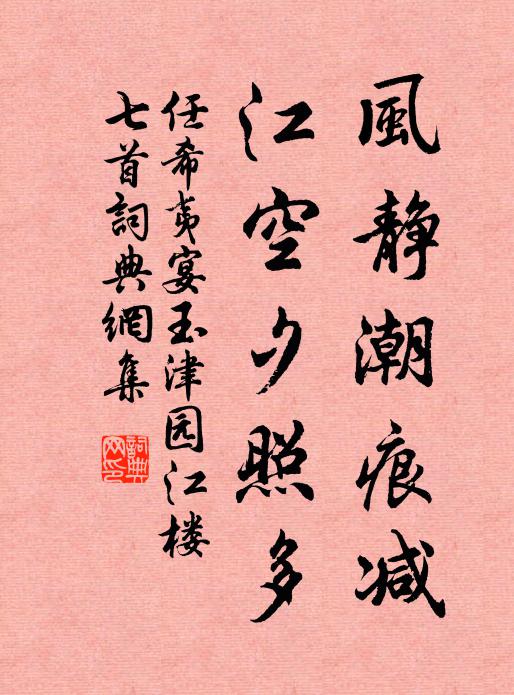 風静潮痕减
江空夕照多
任希夷宴玉津园江楼
七首詞典網集
詞典
网印